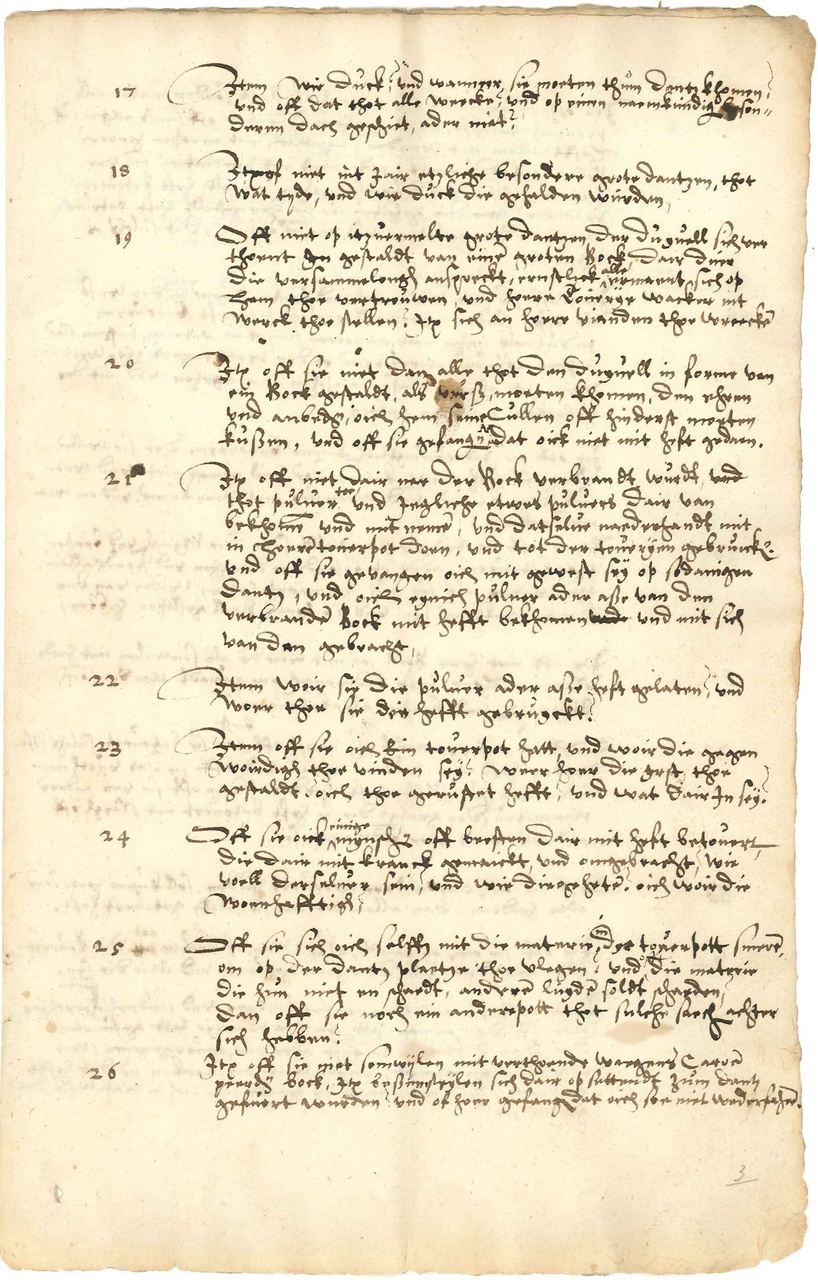 17 Item wie duck, und wanneer sie moeten thom dantz khomen,
und off dat thot alle weecke, und op einen naemkundig beson-
deren dach geschiet, ader niet?
18 Item off niet int Jair etzliche besondere grote dantzen, thot
wat tyde, und wie duck die gehalden wurden,
19 Off niet op itzvermelte grote dantzen der duyuell sich ver
thoent In gestaldt van eine groten Bock, dair hier
die versammelongh anspreckt, ernstlick alle vermaent sich op
hem thoe vertrouwen, und hoere Touerye wacker int
werck thoe stellen? Itz sich an hoere vianden thoe wreecke
20 Itz off sie niet dan alle thot den duyuell in forme van
ein Bock gestaldt, als moeten khomen, den ehren
und anbedg, oich hem seine Cullen off hinderst moeten
kußen, und off sie gefangn dat oick niet mit heft gedaen.
21 Itz off niet dair nae der Bock verbrandt wurdt, und
thot puluer, und Jegliche etwes puluers dair van
bekhome und mit neme, und datselue naederhandt mit
in hoere touerpot doen, und tot der toueryen gebruick.
und off sie gevangen oich mit gewest sey op sodanigen
dantz, und oich eynich puluer ader aße van den
verbrande Bock mit hefft bekhomen und mit sich
van dan gebracht,
22 Item woir sie die puluer ader aße heft gelaten, und
woer thoe sie die hefft gebruyckt?
23 Item off sie oich kein touerpot hatt, und woir die gegen
woirdigh thoe vinden sey? weer hoer die erst thoe
gestaldt oich thoe gerustet hefft, und wat dair In sey?
24 Off sie oick einige mynsche off beesten dair mit heft betouert
die dair mit kranck gemaickt, und omgebracht, wie
voell derseluer sein, und wie die geheten, oich woir die
woenhafftigh,
25 Off sie sich oich selffz mit die materie in der touerpott smere,
om op der dantz plaetze thoe vlegen, und die materie
die hun niet en schaedt, andere luyde soldt schaeden,
dan off sie noch ein anderpott thot sulche saeck achter
sich hebben?
26 Itz off sie niet somwylen mit verthoende waegens Carose
peerdt bock, Itz beßemstylen sich dair op sittendt zum dantz
gefuert wurden und of hoer gefang dat oich soe niet wederfahre.
3